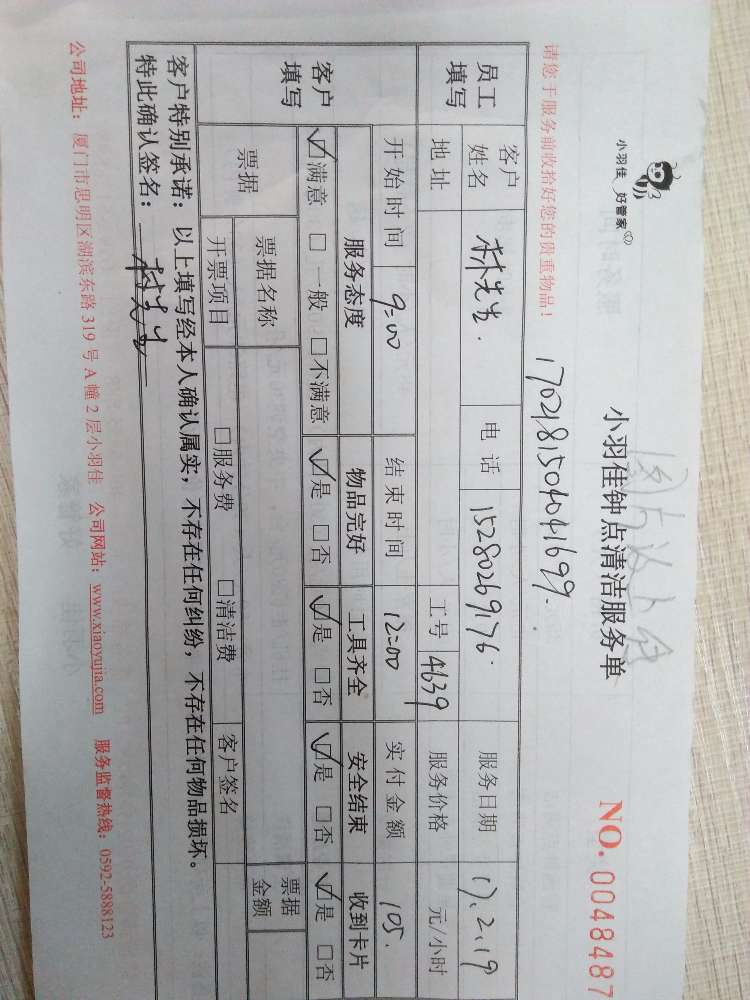 小羽佳 好管家
小羽佳钟点清洁服务单
NO. 0048487
请您于服务前收拾好您的贵重物品！
1702181504041699.
员工填写 客户姓名 林先生. 电话 15280269176. 服务日期 17.2.19
地址 工号 4639 服务价格 元/小时
开始时间 9:00 结束时间 12:00 实付金额 105.
客户填写 服务态度 物品完好 工具齐全 安全结束 收到卡片
☑满意 □一般 □不满意 ☑是 □否 ☑是 □否 ☑是 □否 ☑是 □否
票据 票据名称 票据金额
开票项目 □服务费 □清洁费 客户签名
客户特别承诺：以上填写经本人确认属实，不存在任何纠纷，不存在任何物品损坏。
特此确认签名：林先生
公司地址：厦门市思明区湖滨东路 319 号 A 幢 2 层小羽佳 公司网站：www.xiaoyujia.com 服务监督热线：0592-5888123